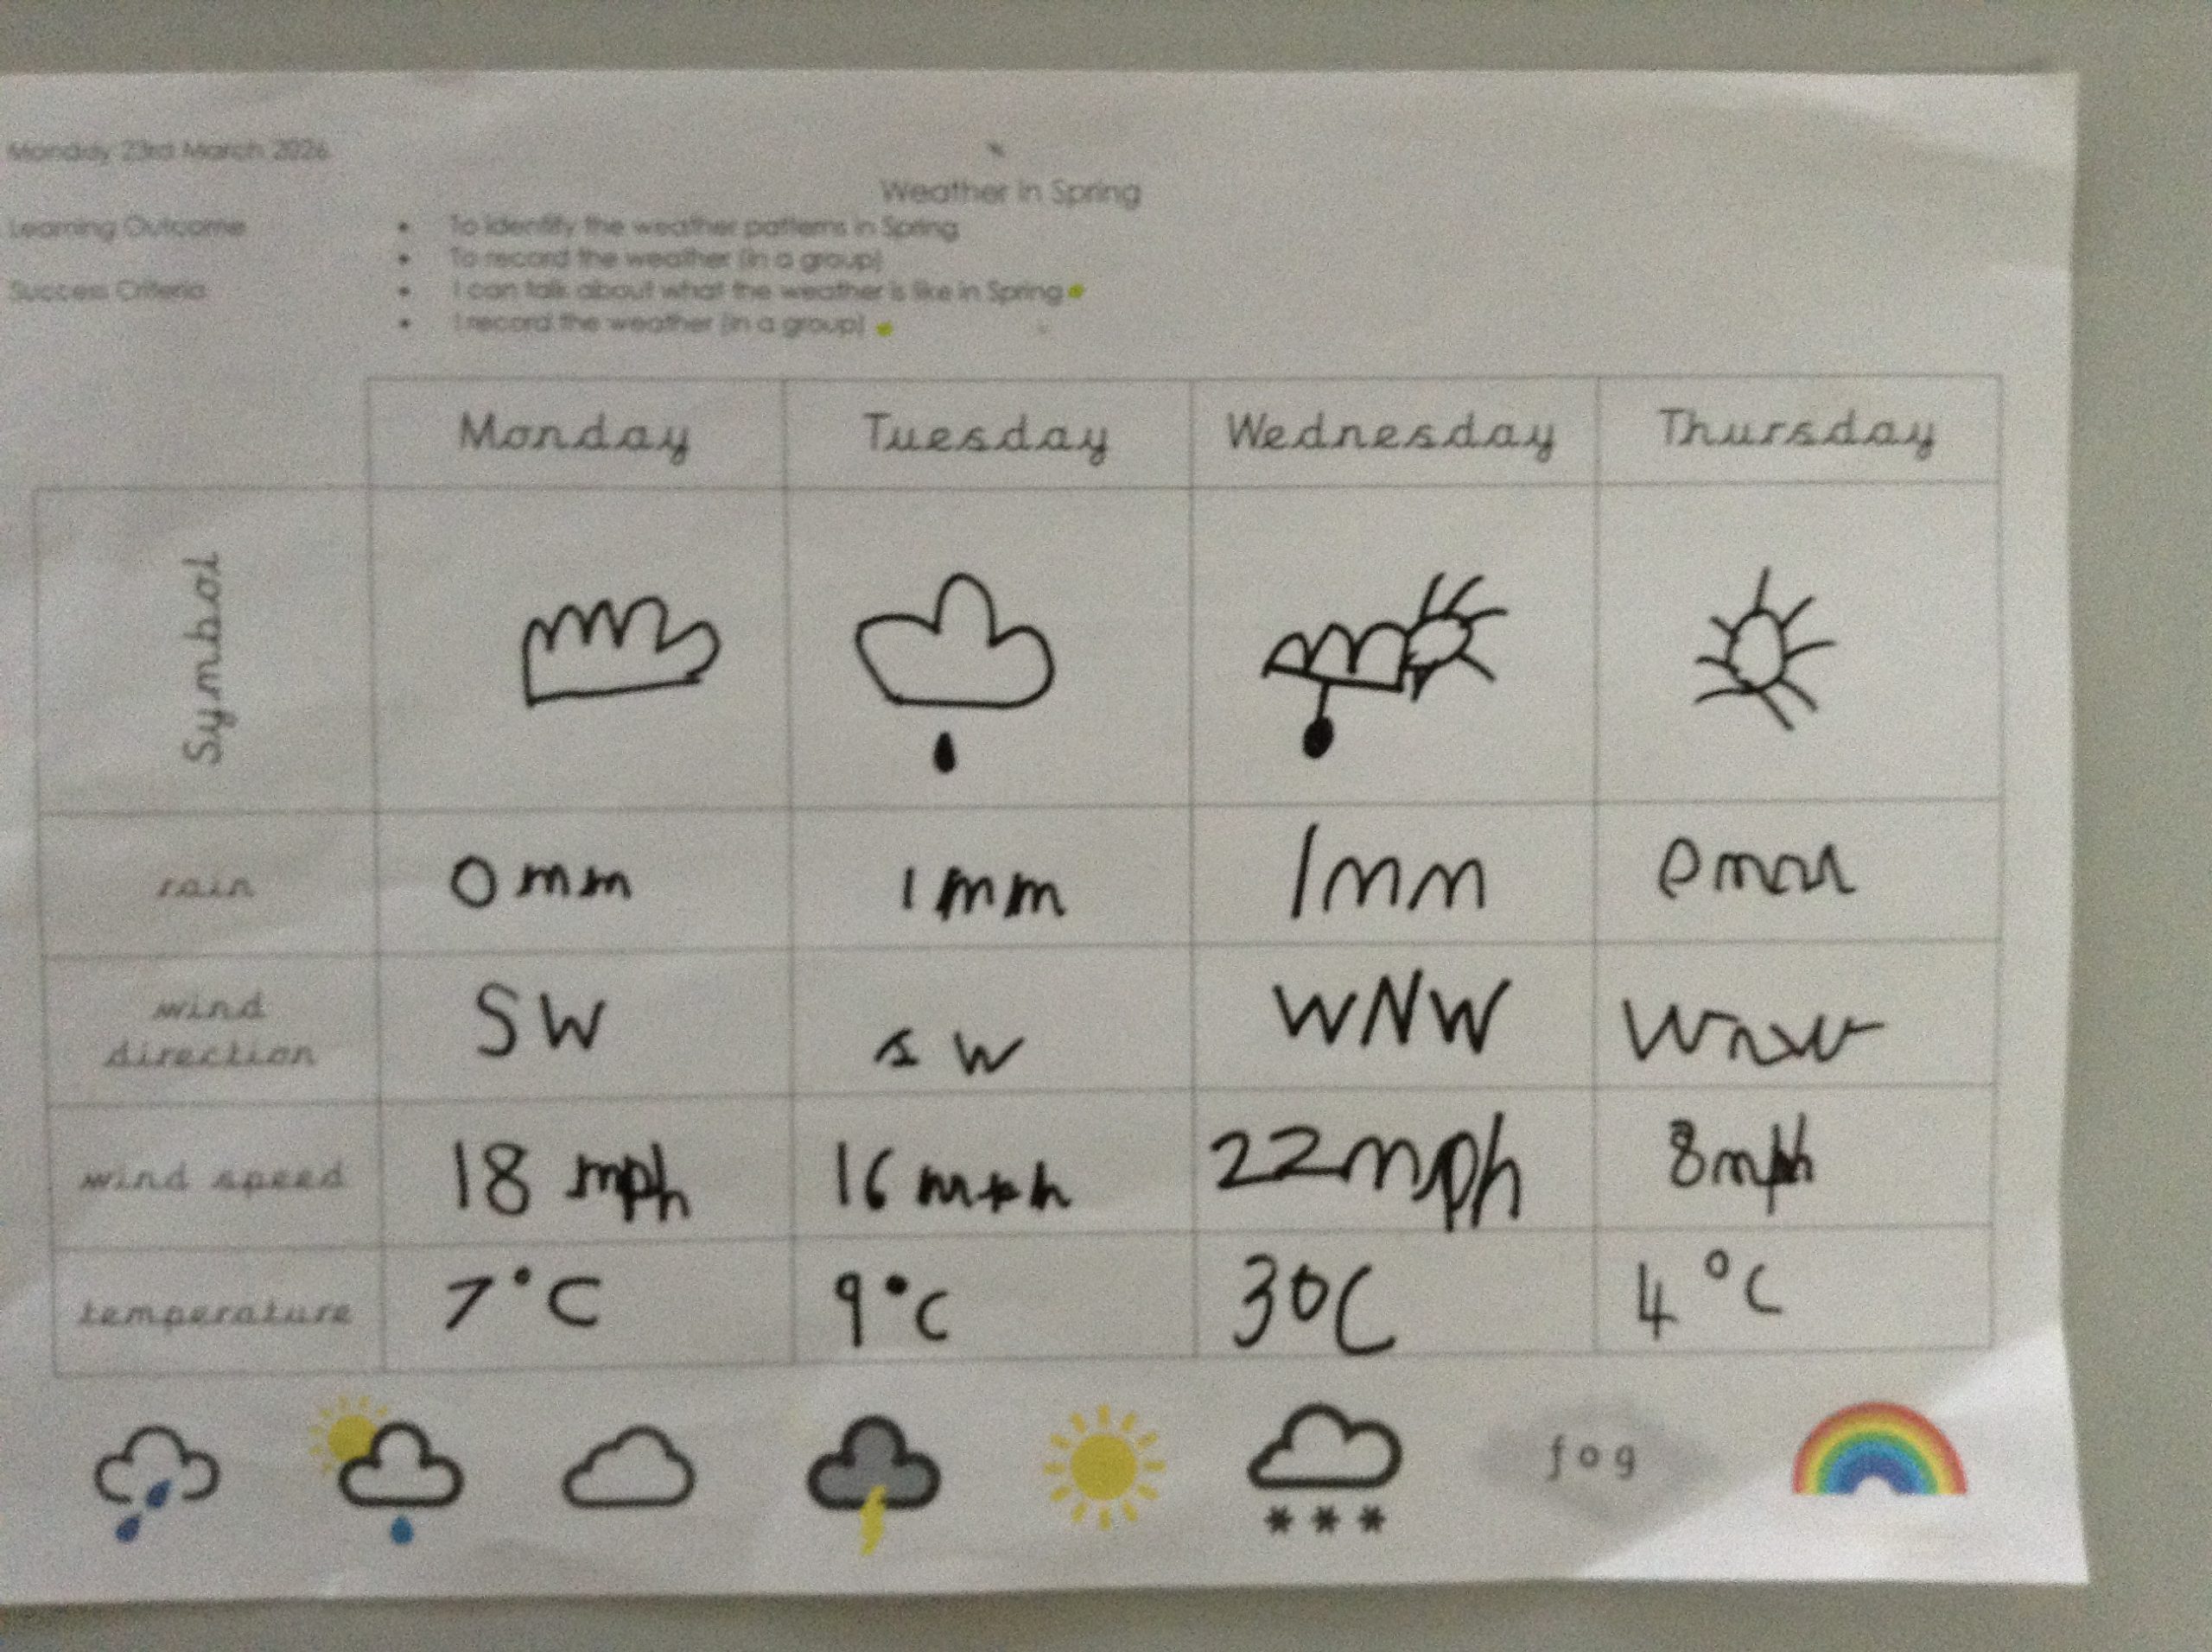 Monday 23rd March 2026
Weather in Spring
Learning Outcome • To identify the weather patterns in Spring
• To record the weather (in a group)
Success Criteria • I can talk about what the weather is like in Spring
• I record the weather (in a group)
Monday Tuesday Wednesday Thursday
Symbol
rain 0 mm 1 mm 1mm 0mm
wind direction SW sw WNW Wnw
wind speed 18 mph 16 mph 22mph 8mph
temperature 7°C 9°C 3°C 4°C
fog